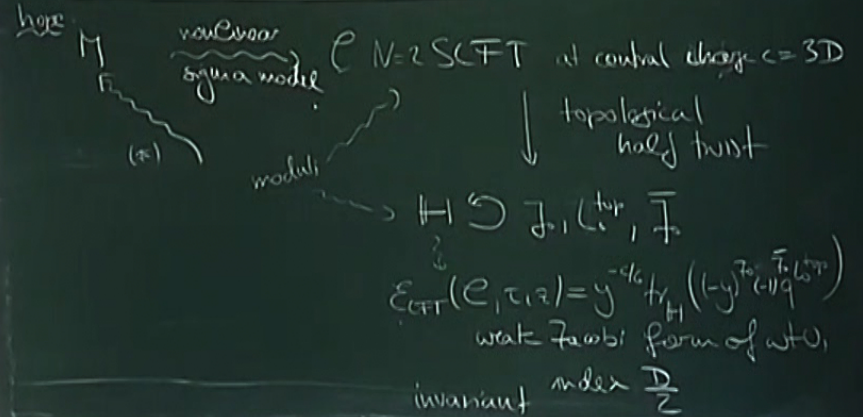 hope:
M nonlinear sigma model C N=2 SCFT at central charge c=3D
topological
half twist
(*)
moduli
H ↺ J₀, L₀^top, J̄₀
ε_CFT(C,τ,z) = y^{-c/6} tr_H((-y)^{J₀} (-1)^{J̄₀} q^{L₀^top})
weak Jacobi form of wt 0,
index D/2
invariant